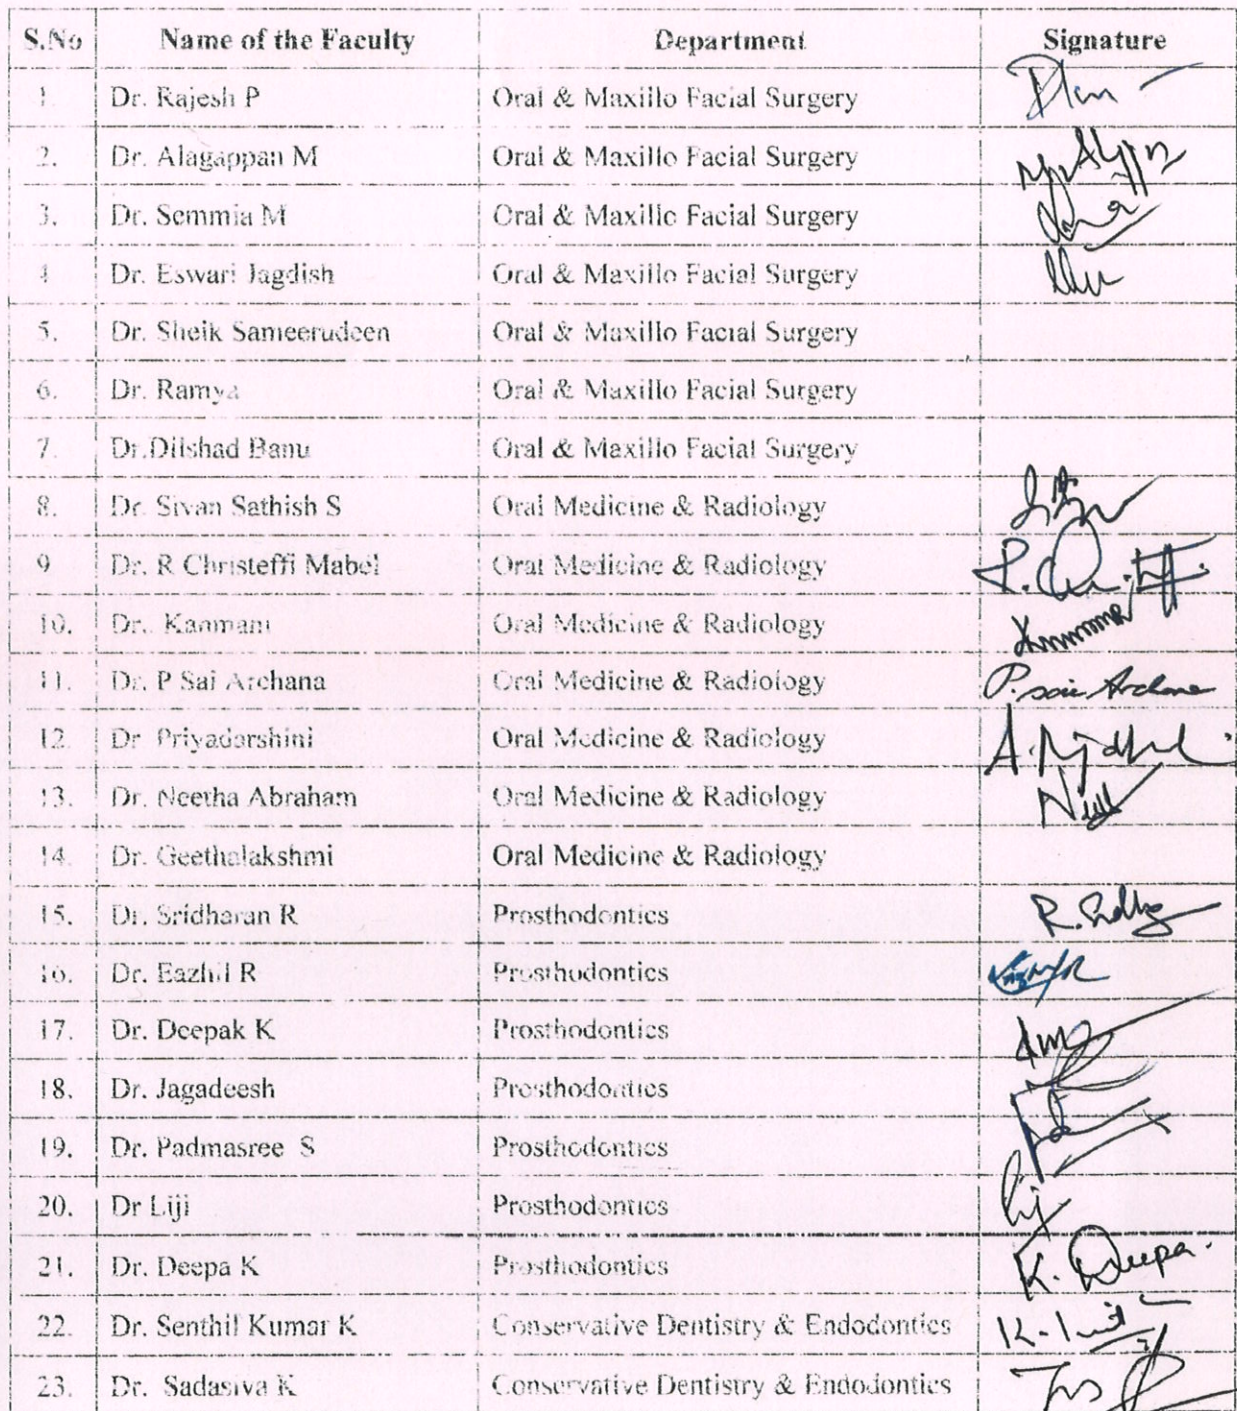 S.No Name of the Faculty Department Signature
1. Dr. Rajesh P Oral & Maxillo Facial Surgery
2. Dr. Alagappan M Oral & Maxillo Facial Surgery
3. Dr. Semmia M Oral & Maxillo Facial Surgery
4 Dr. Eswari Jagdish Oral & Maxillo Facial Surgery
5. Dr. Sheik Sameerudeen Oral & Maxillo Facial Surgery
6. Dr. Ramya Oral & Maxillo Facial Surgery
7. Dr.Dilshad Banu Oral & Maxillo Facial Surgery
8. Dr. Sivan Sathish S Oral Medicine & Radiology
9 Dr. R Christeffi Mabel Oral Medicine & Radiology
10. Dr. Kanmani Oral Medicine & Radiology
11. Dr. P Sai Archana Oral Medicine & Radiology P. Sai Archana
12. Dr Priyadarshini Oral Medicine & Radiology
13. Dr. Neetha Abraham Oral Medicine & Radiology
14. Dr. Geethalakshmi Oral Medicine & Radiology
15. Dr. Sridharan R Prosthodontics
16. Dr. Eazhil R Prosthodontics
17. Dr. Deepak K Prosthodontics
18. Dr. Jagadeesh Prosthodontics
19. Dr. Padmasree S Prosthodontics
20. Dr Liji Prosthodontics
21. Dr. Deepa K Prosthodontics K. Deepa.
22. Dr. Senthil Kumar K Conservative Dentistry & Endodontics
23. Dr. Sadasiva K Conservative Dentistry & Endodontics